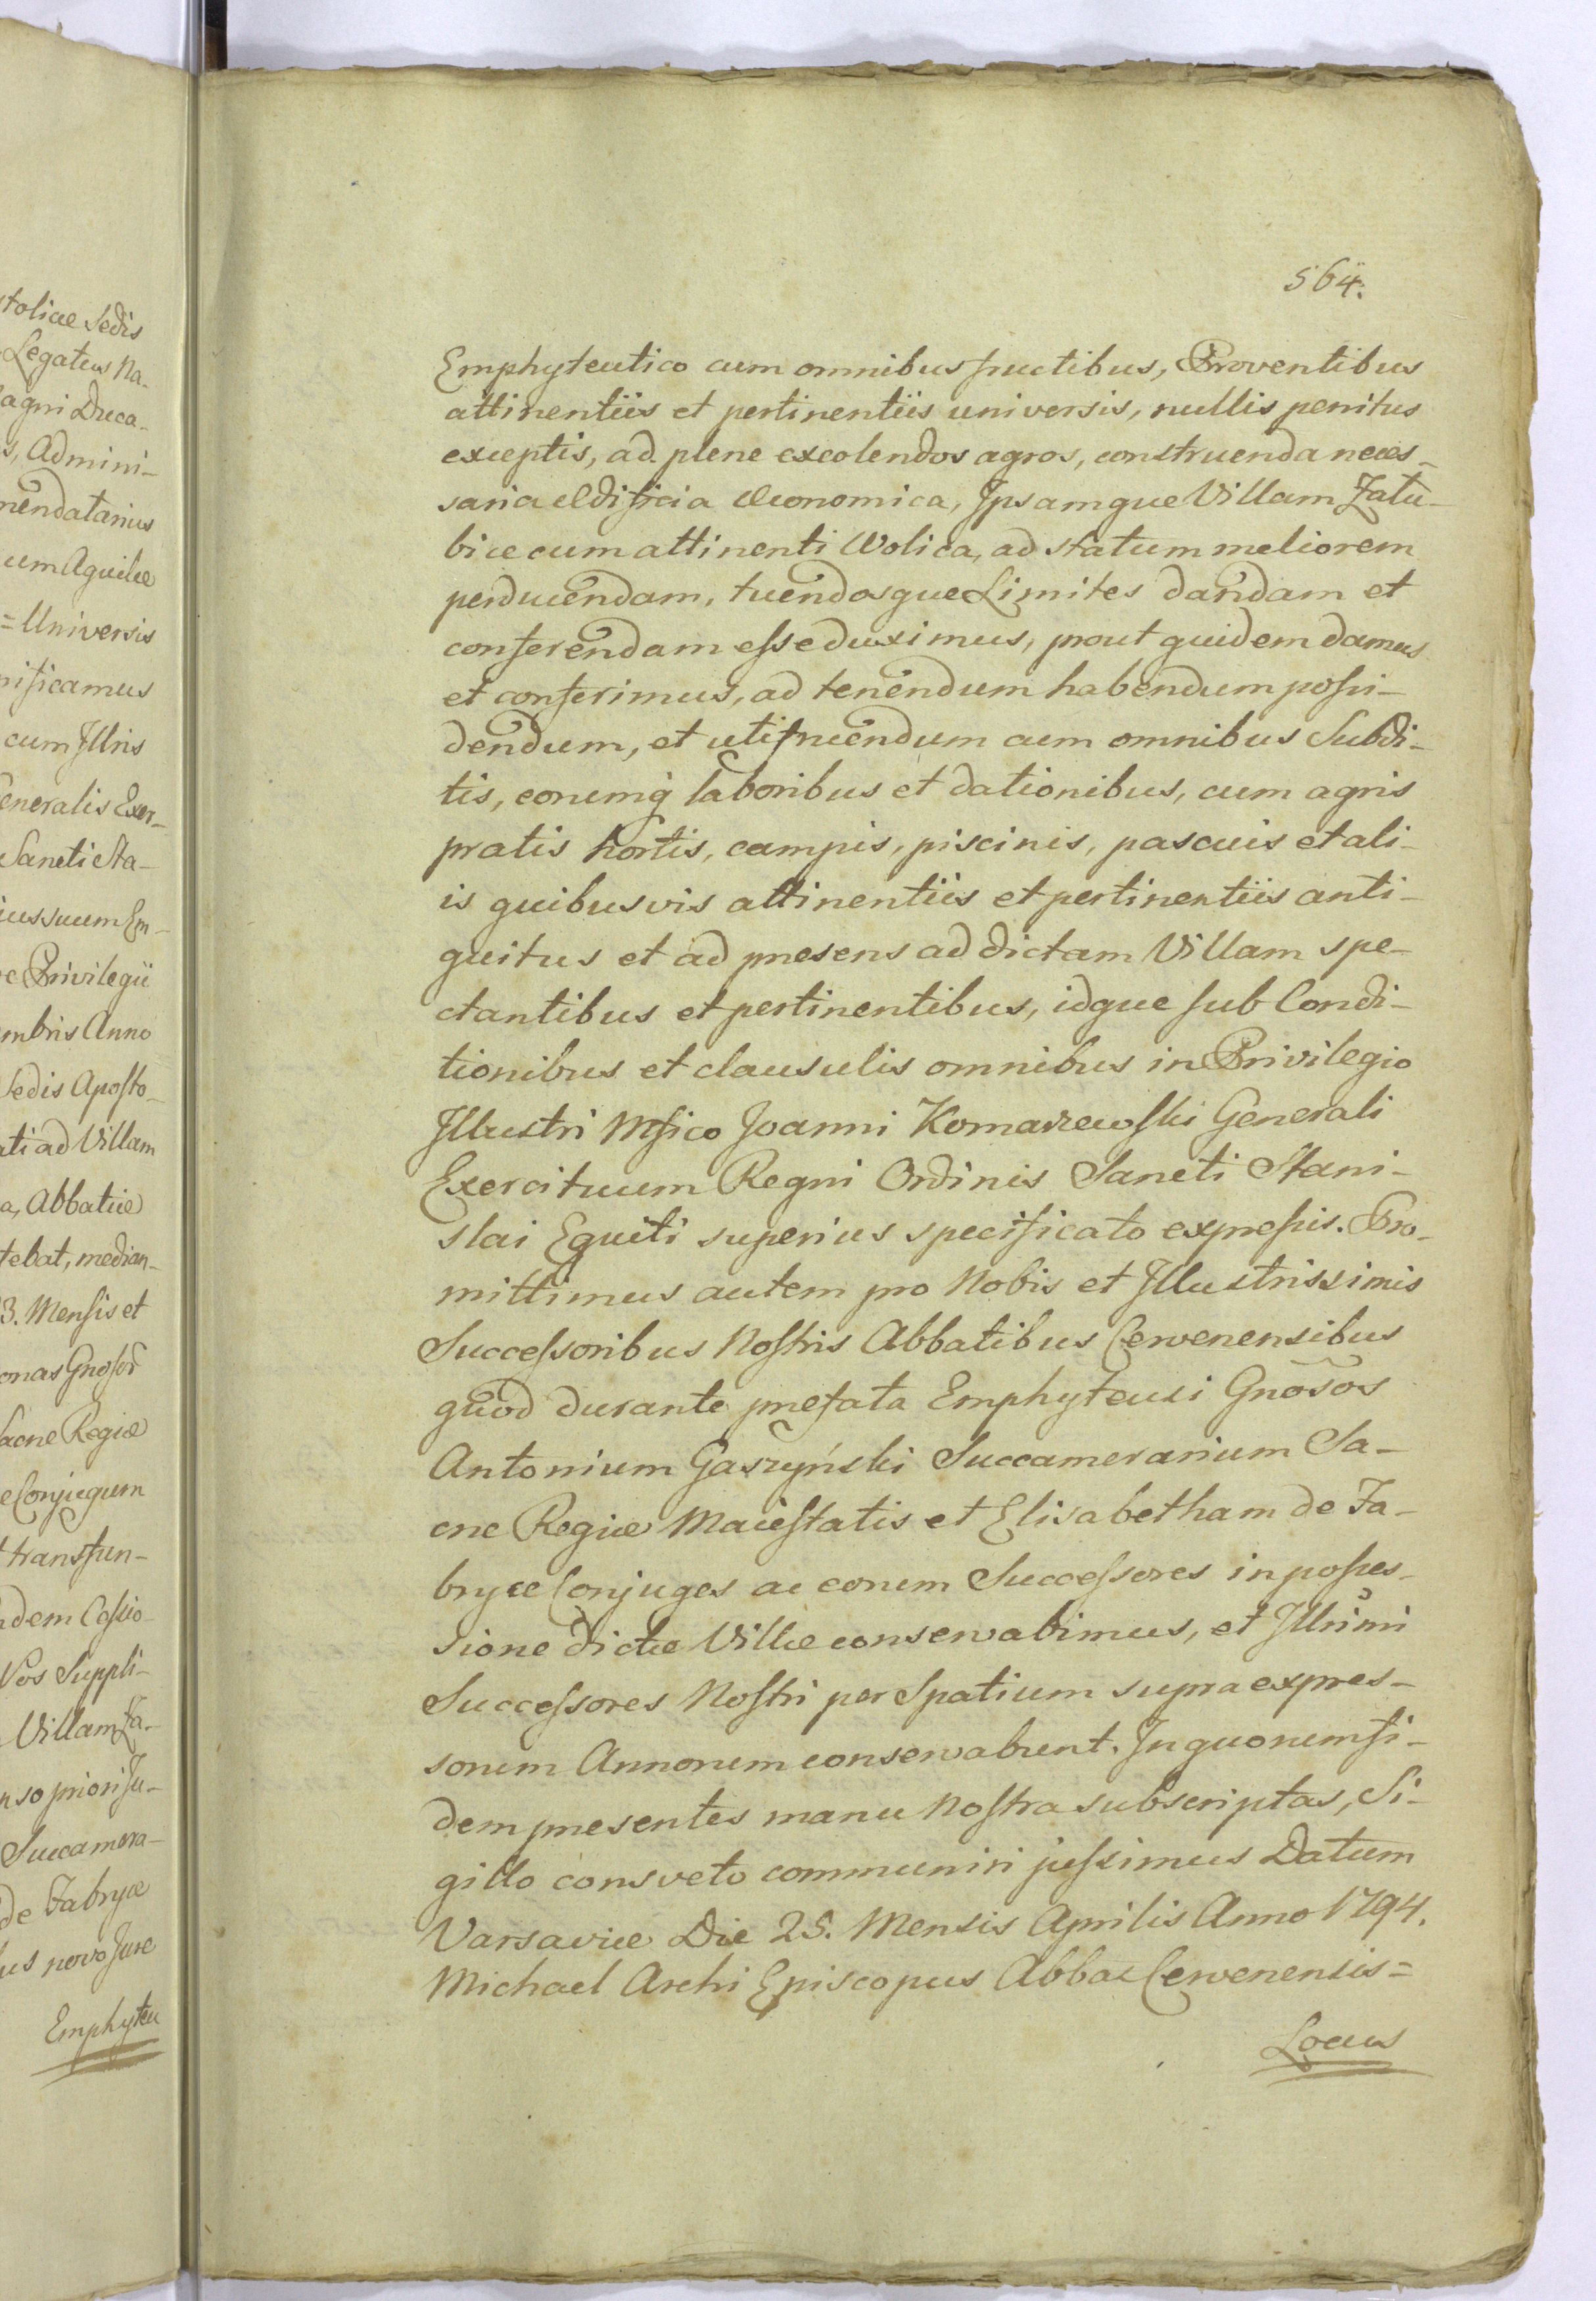 toliæ Sedis
Legatus Na-
agni Duca-
s, Admini-
mendatarius
cum Aquilæ
= Universis
nificamus
cum Jllris
eneralis Exer-
Sancti Sta-
ius suum Em-
Privilegii
mbris Anno
Sedis Aposto-
ati ad Villam
a, Abbatiæ
tebat, median-
3. Mensis et
onas Gnosor
acræ Regiæ
Conjugum
transfun-
dem Cessio-
Nos Suppli-
Villam Za-
nso priori Ju-
Succamera-
de Zabryæ
us novo Jure
Emphyteu
564.
Emphyteutico cum omnibus fructibus, Proventibus
attinentiis et pertinentiis universis, nullis penitus
exceptis, ad plene excolendos agros, construenda neces-
saria ædificia œconomica, Jpsamque Villam Zału-
bice cum attinenti Wolica, ad statum meliorem
perducendam, tuendosque Limites dandam et
conferendam esse duximus, prout quidem damus
et conferimus, ad tenendum habendum possi-
dendum, et utifruendum cum omnibus Subdi-
tis, eorumq́ laboribus et dationibus, cum agris
pratis hortis, campis, piscinis, pascuis et ali-
is quibusvis attinentiis et pertinentiis anti-
quitus et ad præsens ad dictam Villam spe-
ctantibus et pertinentibus, idque sub Condi-
tionibus et clausulis omnibus in Privilegio
Jllustri Mfico Joanni Komarzewski Generali
Exercituum Regni Ordinis Sancti Stani-
slai Equiti superius specificato expressis. Pro-
mittimus autem pro Nobis et Jllustrissimis
Successoribus Nostris Abbatibus Cervenensibus
quod durante præfata Emphyteusi Gnosos
Antonium Gaszyński Succamerarium Sa-
cræ Regiæ Maiestatis et Elisabetham de Za-
bryæ Conjuges ac eorum Successores in posses-
sione dictæ Villæ conservabimus, et Jllrimi
Successores Nostri per Spatium supra expres-
sorum Annorum conservabunt. Jn quorum fi-
dem præsentes manu Nostra subscriptas, Si-
gillo consveto communiri jussimus Datum
Varsaviæ Die 25. Mensis Aprilis Anno 1794.
Michael Archi Episcopus Abbas Cervenensis=
Locus